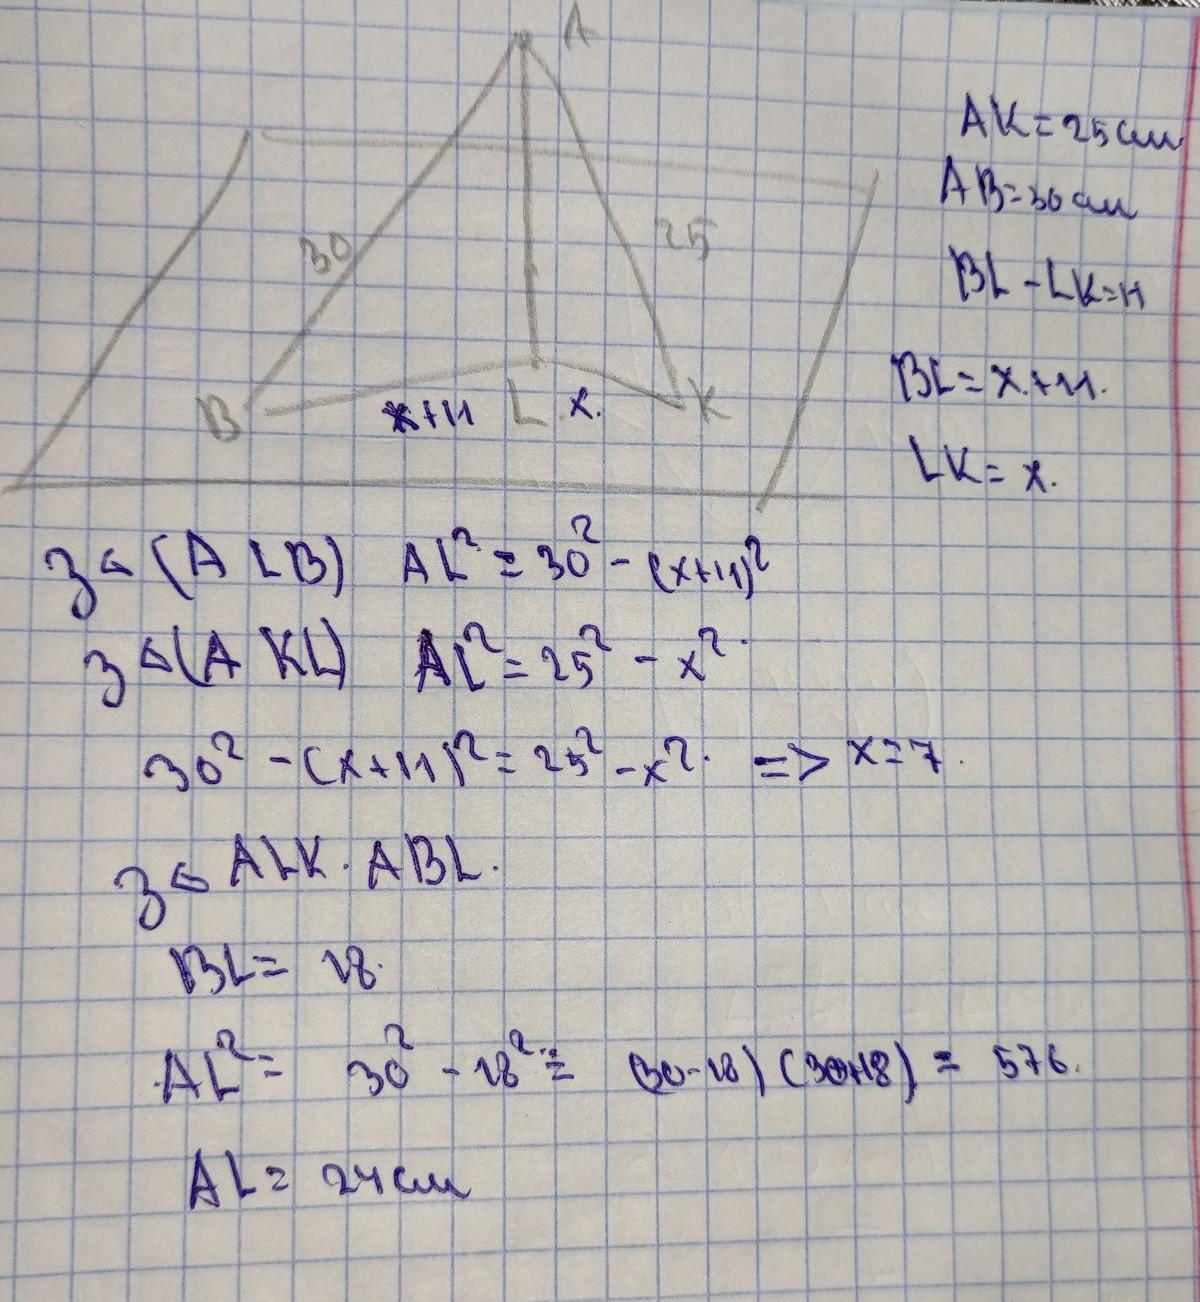 A
30
25
B
x+11
L
x.
K
AK=25см
AB=30см
BL-LK=11
BL=x+11.
LK=x.
З △(ALB) AL²=30²-(x+11)²
З △(AKL) AL²=25²-x².
30²-(x+11)²=25²-x². => x=7.
З △ ALK. ABL.
BL= 18.
AL²= 30²-18²= (30-18)(30+18)= 576.
AL= 24см